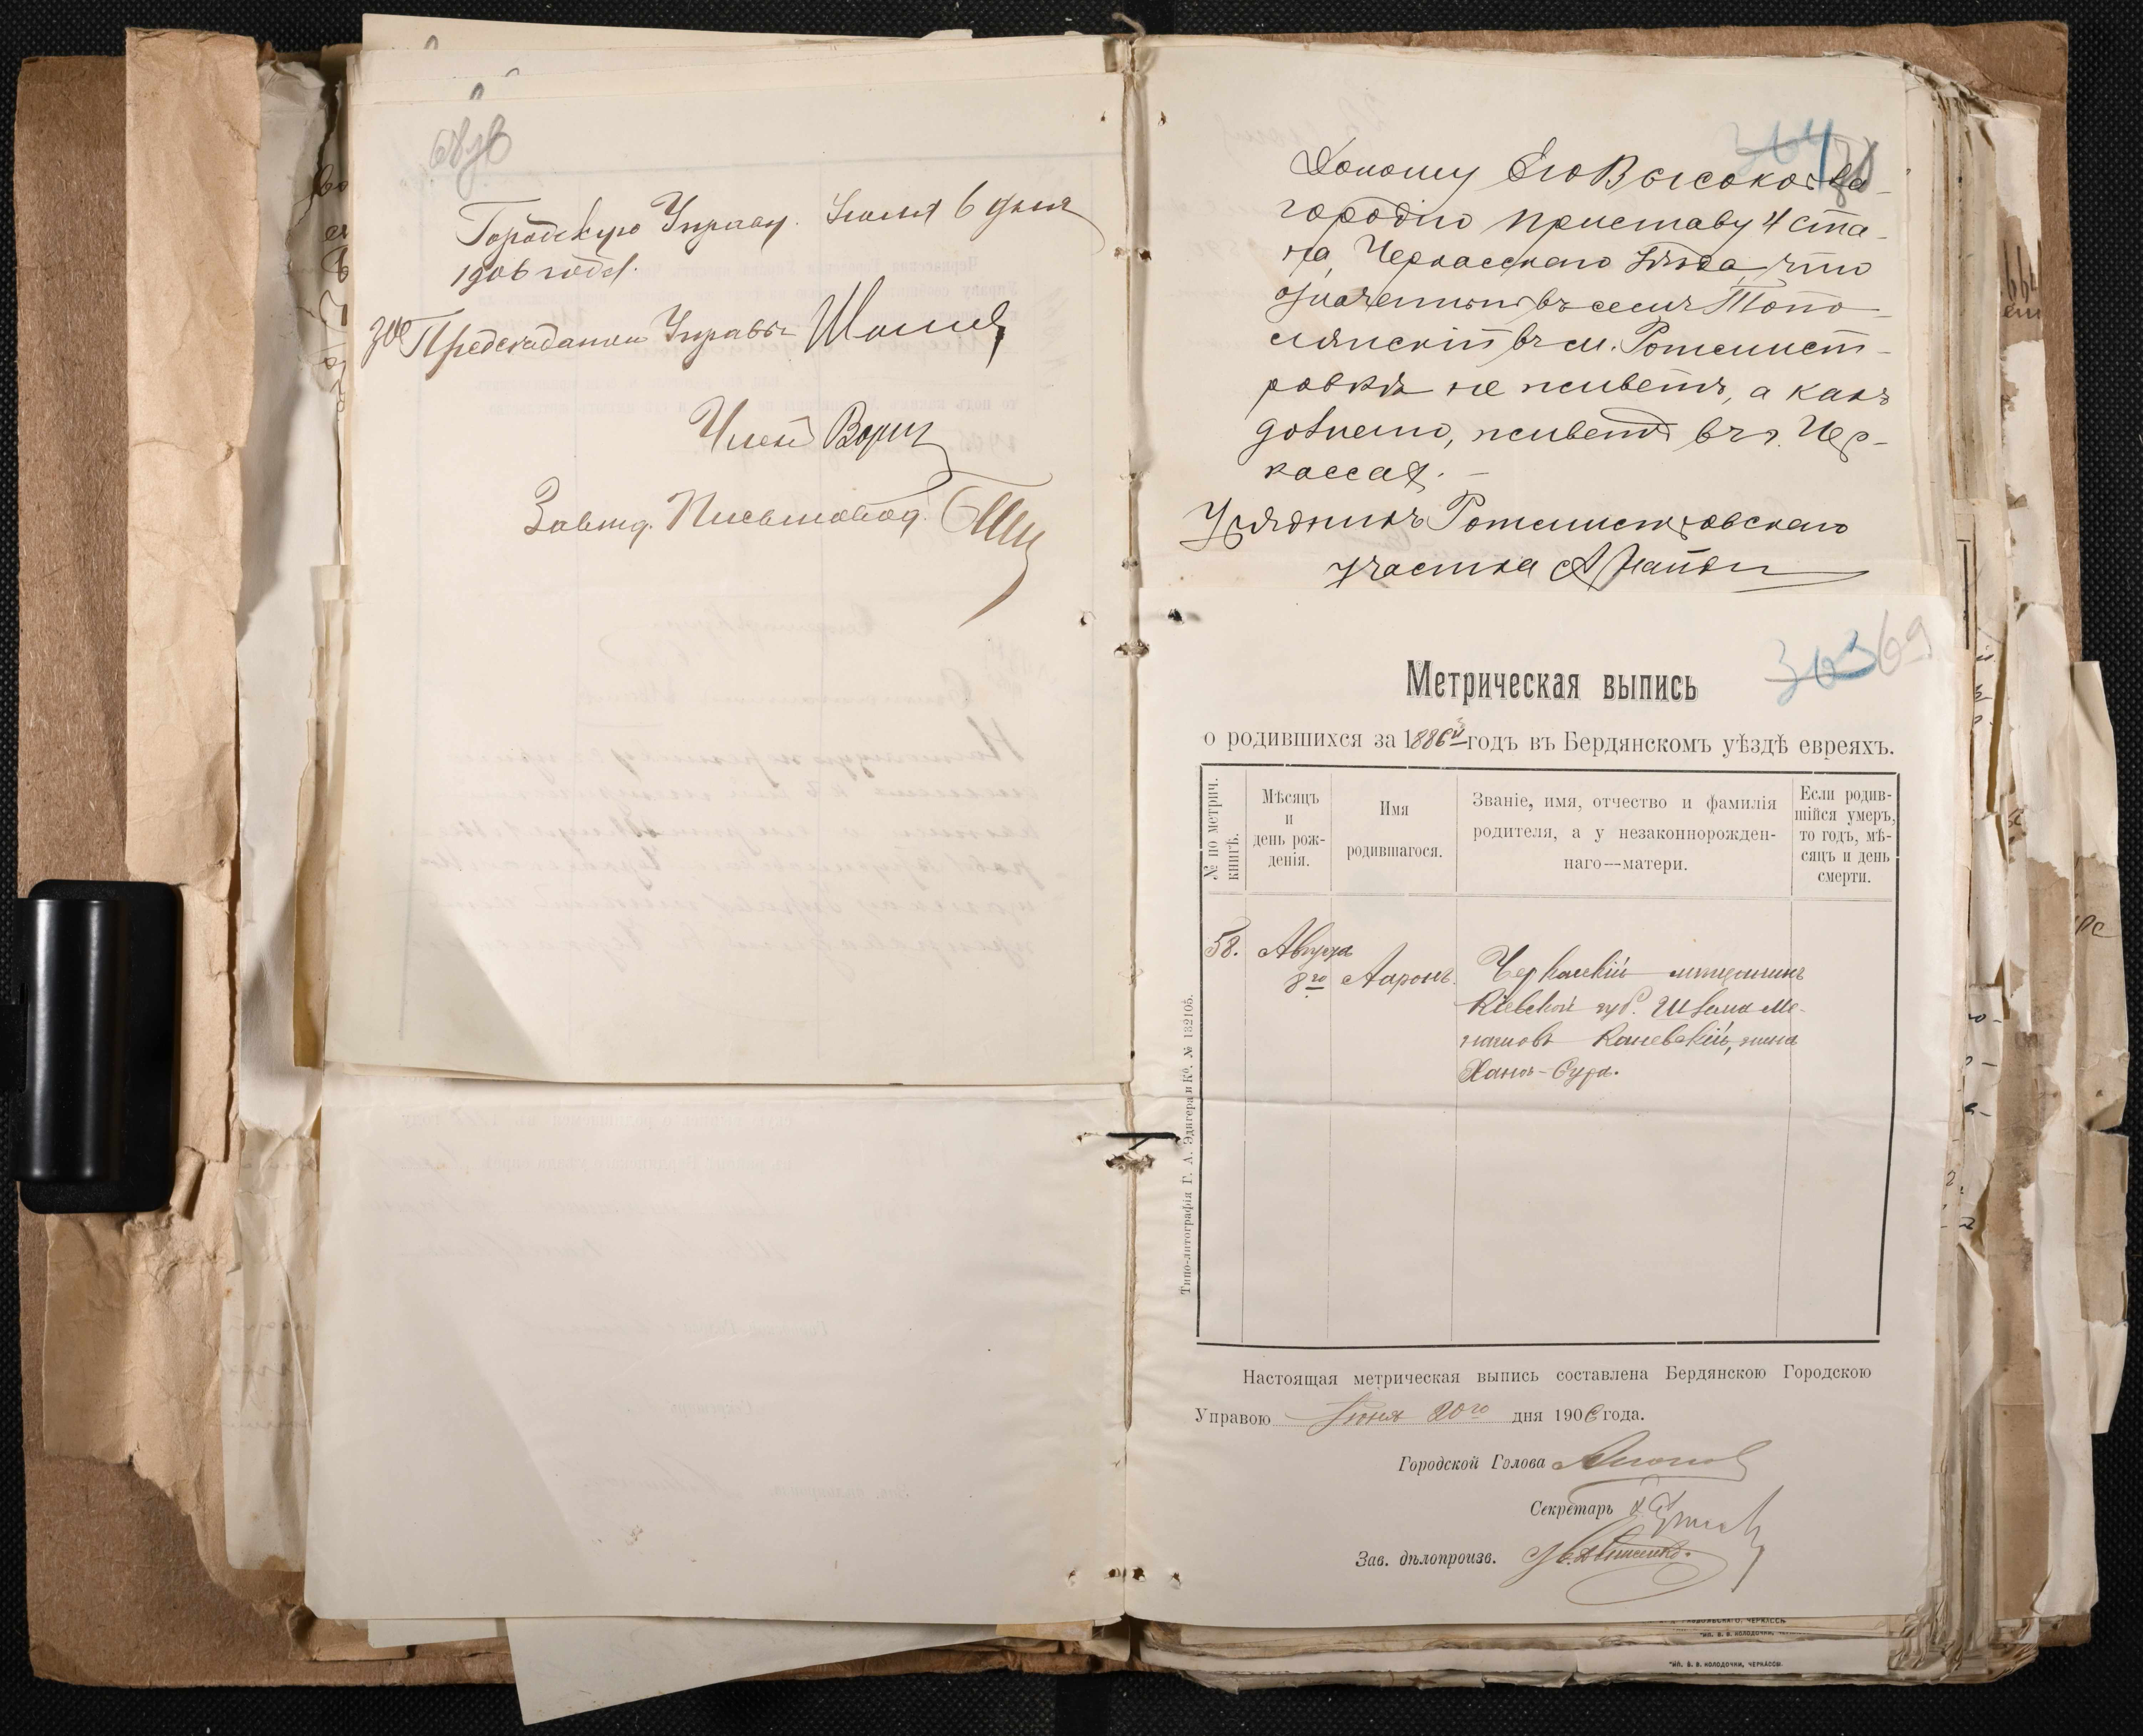 Городскую Управу. Іюля 6 дня
1906 года.
Предсѣдатель Управы
Членъ
Завѣд. Письмовод.
364
Доношу Его Высокобла-
городію Приставу 4 ста-
на, Черкасскаго уѣзда, что
означенный въ семъ Топо-
лянскій въ м. Ротмист-
ровкѣ не живетъ, а какъ
дознано, живетъ въ г. Чер-
кассах. -
Урядникъ Ротмистровскаго
участка
363 69
Метрическая выпись
о родившихся за 1886й годъ въ Бердянскомъ уѣздѣ евреяхъ.
№ по метрич. книгѣ.
Мѣсяцъ и день рож-денія.
Имя родившагося.
Званіе, имя, отчество и фамилія родителя, а у незаконнорожден-наго—матери.
Если родив-шійся умеръ, то годъ, мѣ-сяцъ и день смерти.
58. Августа
8го Ааронъ. Черкасскій мѣщанинъ
Кіевской губ. Шлема Ме-
нахиовъ Каневскій, жена
Хана-Сура.
Типо-литографія Г. А. Эдигера и Ко. № 132105.
Настоящая метрическая выпись составлена Бердянскою Городскою
Управою Іюня 20го дня 1906 года.
Городской Голова
Секретарь
Зав. дѣлопроизв.
ЧЕРКАССЫ
ТИП. В. В. КОЛОДОЧКИ,
ТИП. В. В. КОЛОДОЧКИ, ЧЕРКАССЫ.